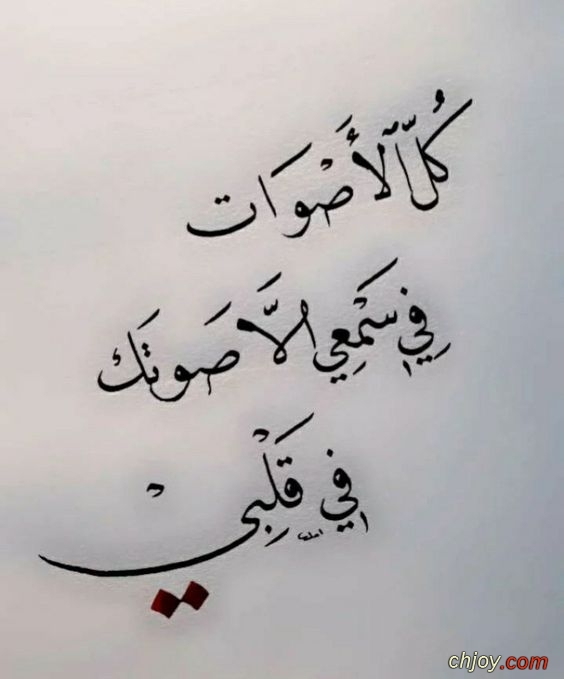 كُلّ الأَصْوَات
فِي سَمْعِي الَّا صَوتَك
فِي قَلْبِيْ
chjoy.com